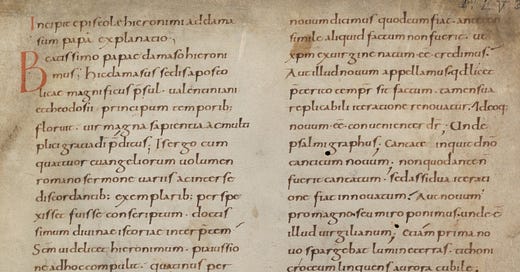 Incipit epistole hieronimi addama
sum papā explanatio;
Beatissimo papae damaso hieroni
mus; Hic damasus sedis aposto
licae magnificus psul. valentiniani
et theodosii principum temporib;
floruit. vir magna sapientia acmulti
plici gratia dī pdicus; Is ergo cum
quattuor euangeliorum volumen
romano sermone variis ac inter se
discordantib; exemplarib; per spe
xisset fuisse conscriptum. doctis
simum divinae istoriae interptem
Scm videlicet hieronimum. piavissio
ne ad hoc compulit. quatinus per
novum dicimus quod cum fiat. ante non
simile aliquid factum non fuerit. ut
xpm ex virgine natum ee credimus.
Aut illud novum appellamus qd licet
pterito tempr sit factum. tamen sua
replicabili iteratione renovatur; Adeoq;
novum ee convenienter dr; Unde
psalmigraphus; Cantate inquit dno
canticum novum; non quod ante non
fuerit cantatum. sed assidua iterati
one fiat innovatum; Aut novum
pro magno seu miro ponimus; unde ē
illud virgilianum; Et iam prima no
vo spargebat lumine terras. tithoni
croceum linquens aurora cubile;